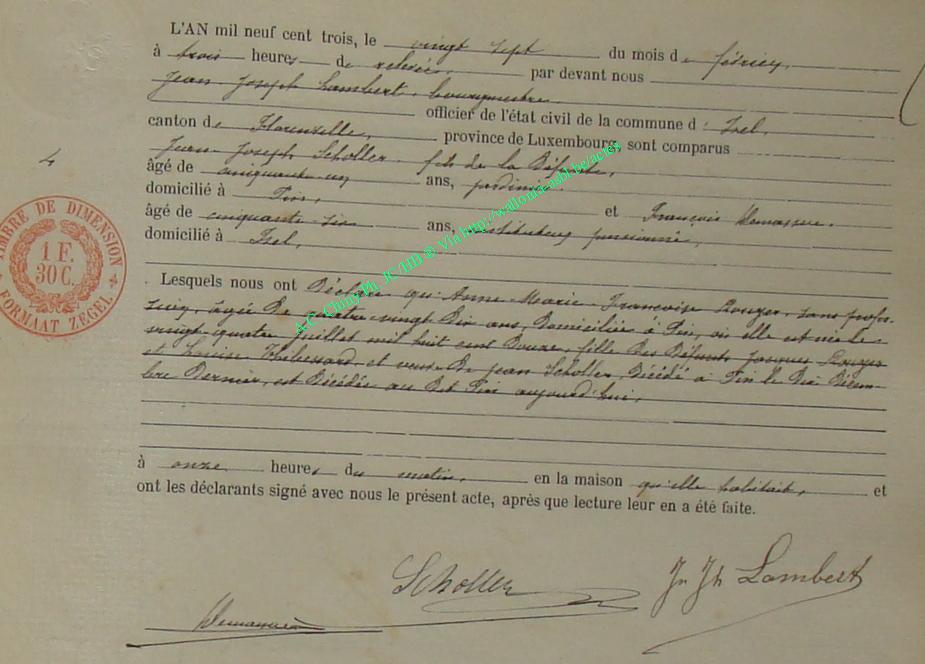 L'AN mil neuf cent trois, le vingt sept du mois de février,
à trois heures de relevée, par devant nous
Jean Joseph Lambert, bourgmestre
officier de l'état civil de la commune d'Izel,
canton de Florenville, province de Luxembourg, sont comparus
Jean Joseph Scholler, fils de la Défunte,
âgé de cinquante un ans, jardinier
domicilié à Pin, et François
âgé de cinquante six ans, instituteur pensionné,
domicilié à Izel,
4
TIMBRE DE DIMENSION
1 F.
30 C.
FORMAAT ZEGEL
Lesquels nous ont Déclaré qu'Anne Marie Françoise sans profes-
sion, âgée De quatre vingt Dix ans, Domiciliée à Pin, où elle est née le
vingt quatre Juillet mil huit cent Douze, fille Des Défunts Jacques
et Louise et veuve De Jean Scholler, Décédé à Pin le Dix Décem-
bre Dernier, est Décédée au Dit Pin aujourd'hui,
à onze heures du matin, en la maison qu'elle habitait, et
ont les déclarants signé avec nous le présent acte, après que lecture leur en a été faite.
Scholler Jn Jh Lambert
A.C. Chiny Ph. JC/HB @ Via http://walloniaasbl.be/actes